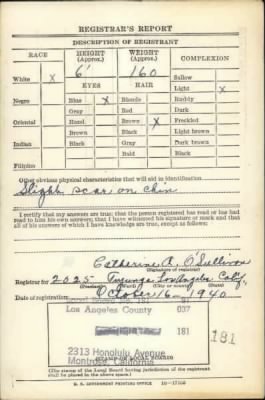 REGISTRAR'S REPORT
DESCRIPTION OF REGISTRANT
RACE
HEIGHT (Approx.)
WEIGHT (Approx.)
COMPLEXION
6'
160
White X
EYES
HAIR
Sallow
Light X
Negro
Blue X
Blonde
Ruddy
Gray
Red
Dark
Oriental
Hazel
Brown X
Freckled
Brown
Black
Light brown
Indian
Black
Gray
Dark brown
Bald
Black
Filipino
Other obvious physical characteristics that will aid in identification
Slight scar on chin
I certify that my answers are true; that the person registered has read or has had
read to him his own answers; that I have witnessed his signature or mark and that
all of his answers of which I have knowledge are true, except as follows:
Catherine A. O'Sullivan
(Signature of registrar)
Registrar for 2025 Los Angeles Calif.
(Precinct) (Ward) (City or county) (State)
Date of registration October 16 - 1940
181
Los Angeles County 037
181
181
2313 Honolulu Avenue
Montrose, California
STAMP OF LOCAL BOARD
(The stamp of the Local Board having jurisdiction of the registrant
shall be placed in the above space.)
U. S. GOVERNMENT PRINTING OFFICE